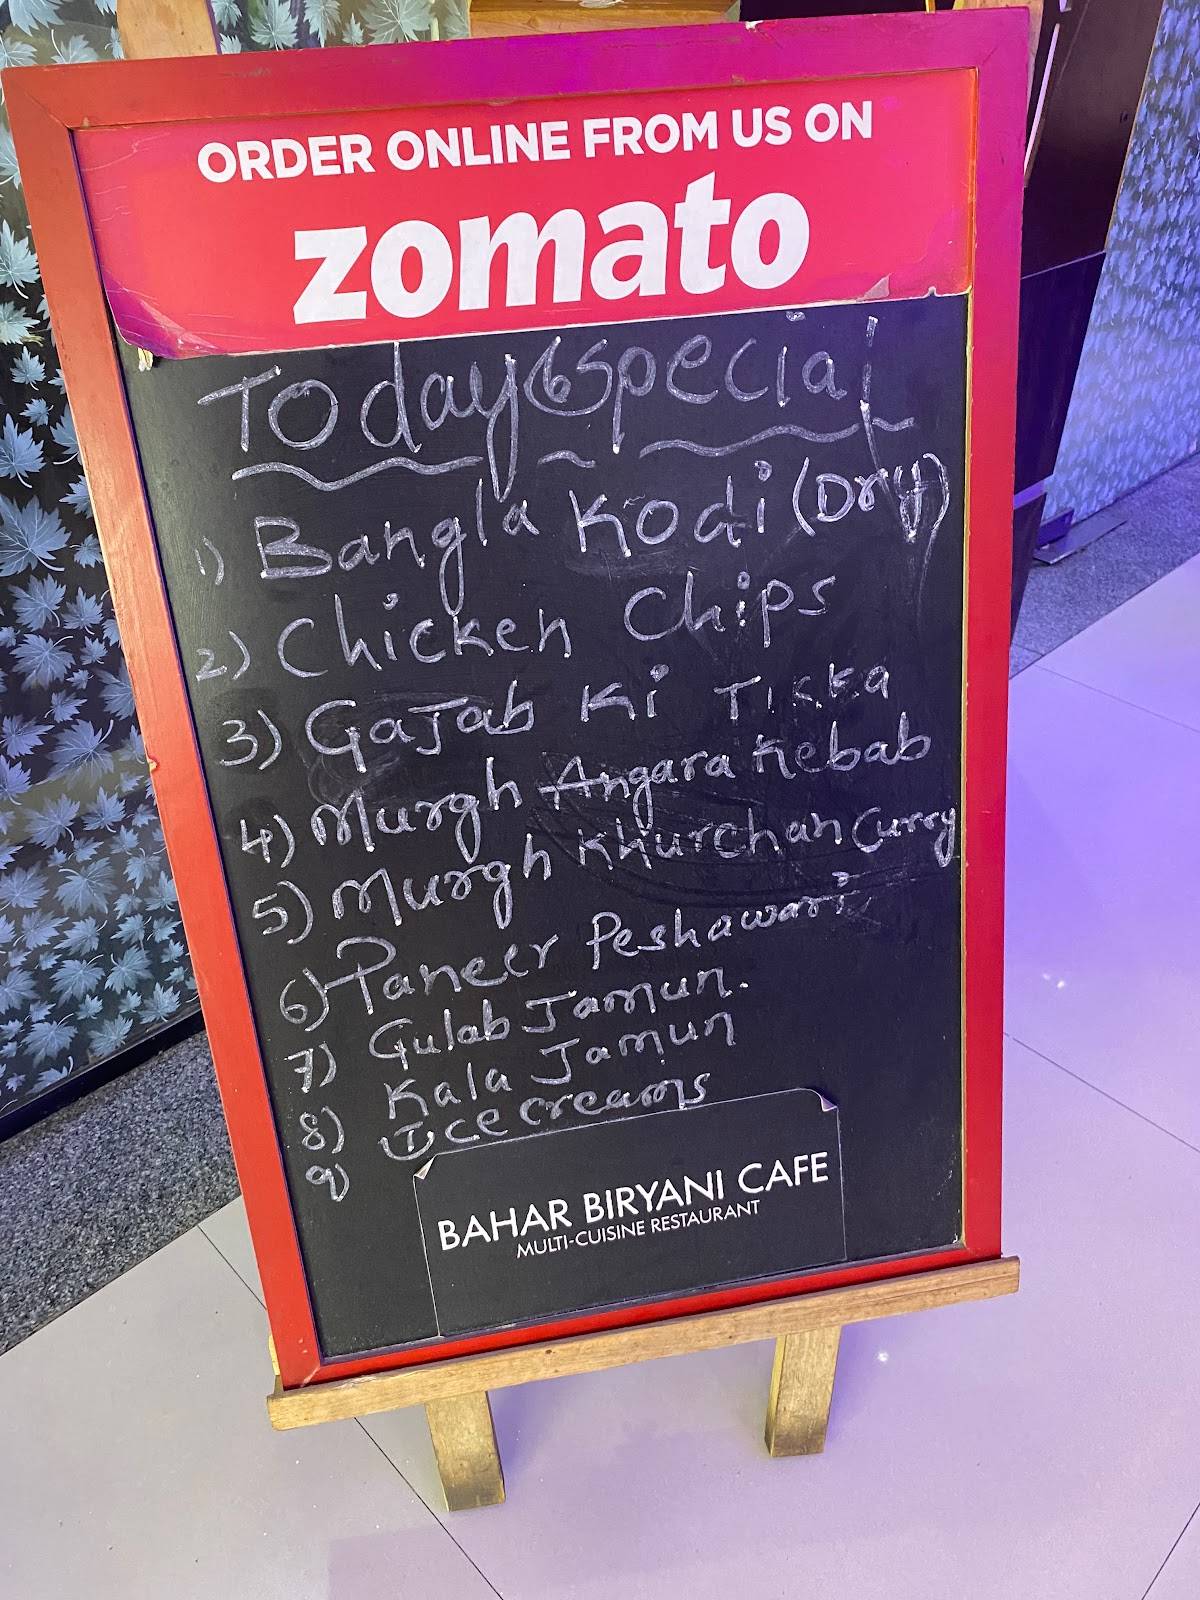 ORDER ONLINE FROM US ON
zomato
Today's Special
1) Bangla Kodi (Dry)
2) Chicken Chips
3) Gajab Ki Tikka
4) Murgh Angara Kebab
5) Murgh Khurchan Curry
6) Paneer Peshawari
7) Gulab Jamun.
8) Kala Jamun
9) Ice creams
BAHAR BIRYANI CAFE
MULTI-CUISINE RESTAURANT